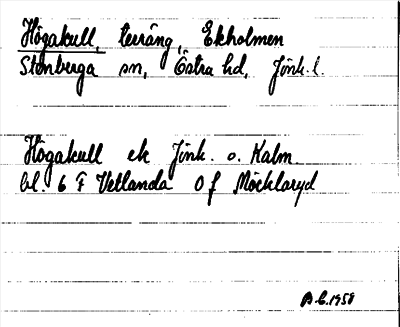 Högakull, terräng, Ekholmen
Stenberga sn, Östra hd, Jönk. l.
Högakull ek Jönk. o. Kalm.
bl. 6 F Vetlanda 0 f Möcklaryd
A.C. 1958